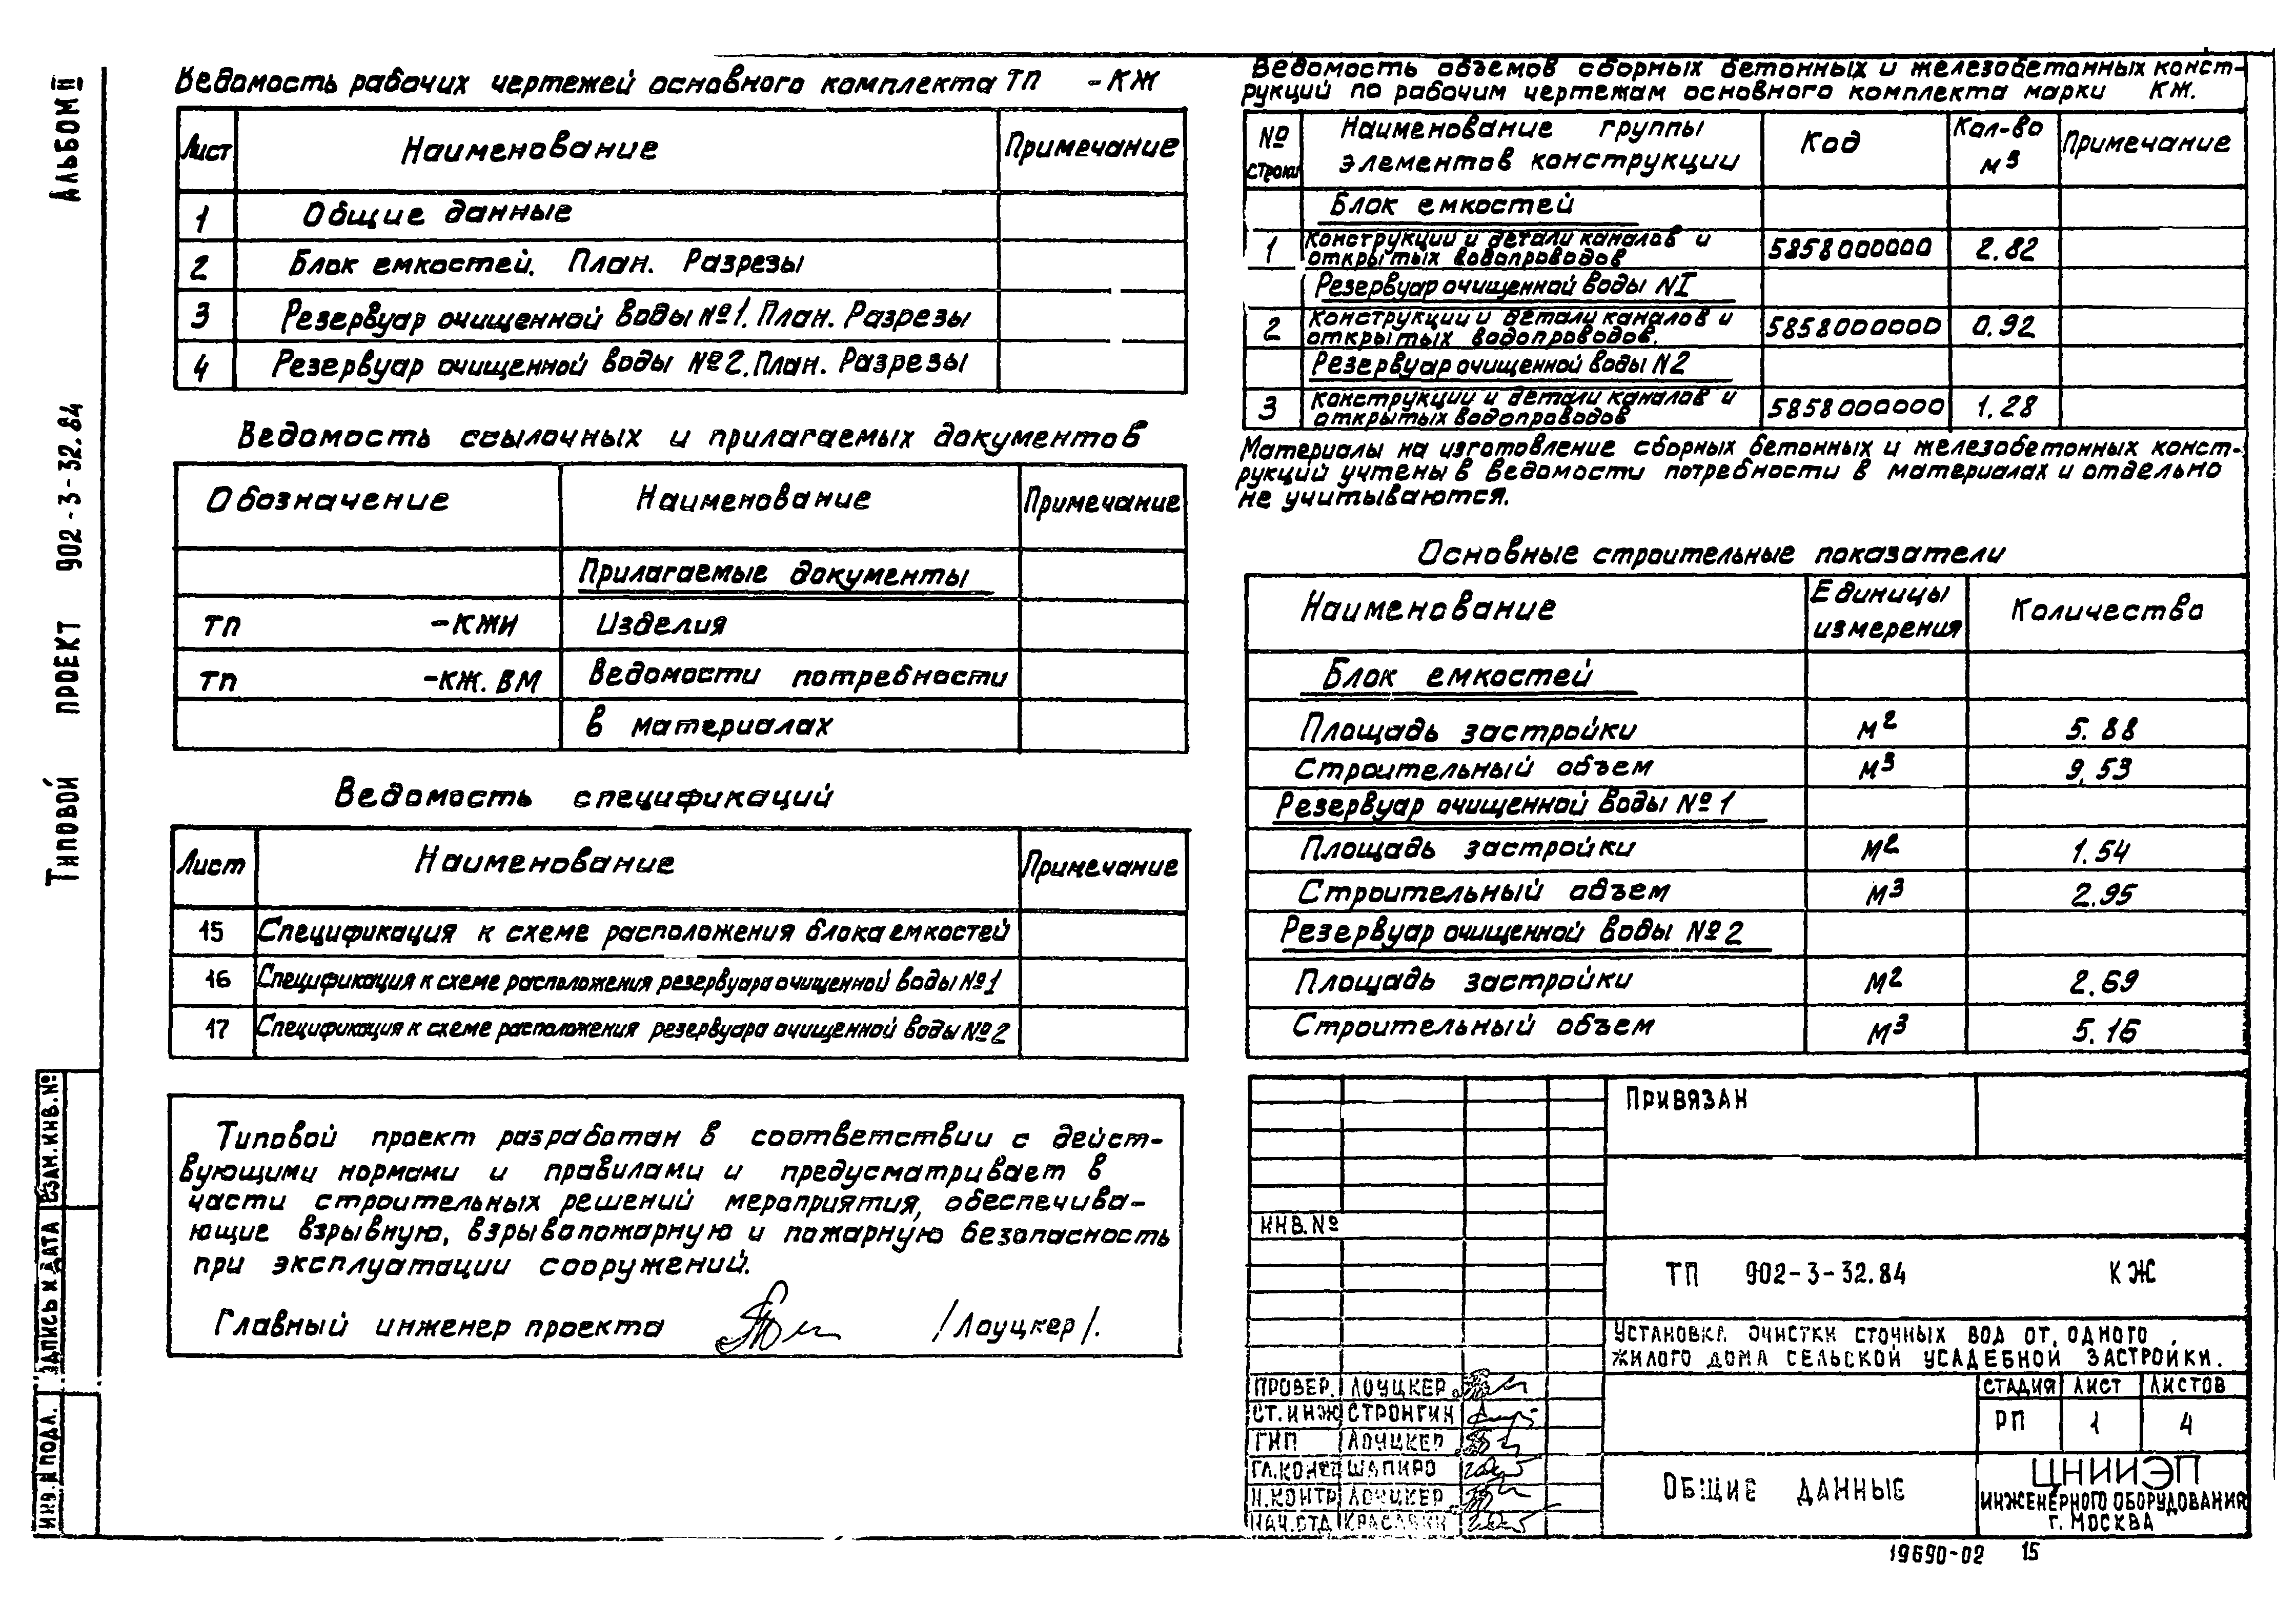 Альбом II
Типовой проект 902-3-32.84
Ведомость рабочих чертежей основного комплекта ТП -КЖ
Лист Наименование Примечание
1 Общие данные
2 Блок емкостей. План. Разрезы
3 Резервуар очищенной воды №1. План. Разрезы
4 Резервуар очищенной воды №2. План. Разрезы
Ведомость ссылочных и прилагаемых документов
Обозначение Наименование Примечание
Прилагаемые документы
ТП -КЖИ Изделия
ТП -КЖ. ВМ Ведомости потребности
в материалах
Ведомость спецификаций
Лист Наименование Примечание
15 Спецификация к схеме расположения блока емкостей
16 Спецификация к схеме расположения резервуара очищенной воды №1
17 Спецификация к схеме расположения резервуара очищенной воды №2
Типовой проект разработан в соответствии с дейст-
вующими нормами и правилами и предусматривает в
части строительных решений мероприятия, обеспечива-
ющие взрывную, взрывопожарную и пожарную безопасность
при эксплуатации сооружений.
Главный инженер проекта /Лоуцкер/.
Ведомость объемов сборных бетонных и железобетонных конст-
рукций по рабочим чертежам основного комплекта марки КЖ.
№ строки Наименование группы элементов конструкции Код Кол-во м3 Примечание
Блок емкостей
1 Конструкции и детали каналов и открытых водопроводов 5858000000 2.82
Резервуар очищенной воды N1
2 Конструкции и детали каналов и открытых водопроводов. 5858000000 0.92
Резервуар очищенной воды N2
3 Конструкции и детали каналов и открытых водопроводов 5858000000 1.28
Материалы на изготовление сборных бетонных и железобетонных конст-
рукций учтены в ведомости потребности в материалах и отдельно
не учитываются.
Основные строительные показатели
Наименование Единицы измерения Количество
Блок емкостей
Площадь застройки м2 5.88
Строительный объем м3 9,53
Резервуар очищенной воды №1
Площадь застройки м2 1.54
Строительный объем м3 2.95
Резервуар очищенной воды №2
Площадь застройки м2 2.69
Строительный объем м3 5.16
Привязан
Инв.№
ТП 902-3-32.84 КЖ
Установка очистки сточных вод от одного
жилого дома сельской усадебной застройки.
Провер. Лоуцкер
Ст.инж Стронгин
ГИП Лоуцкер
Гл.конст Шапиро
Н.контр Лоуцкер
Нач.отд
Стадия Лист Листов
РП 1 4
Общие данные
ЦНИИЭП
инженерного оборудования
г. Москва
Взам.инв.№
Подпись и дата
Инв.№ подл.
19690-02 15